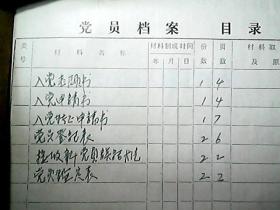 党员档案 目录
类号 材料名称 材料制成时间 年 月 日 份数 页数 材料取及原
入党志愿书 1 4
入党申请书 1 4
入党转正申请书 1 7
党员登记表 2 6
党员 2 2
党员登记表 2 2